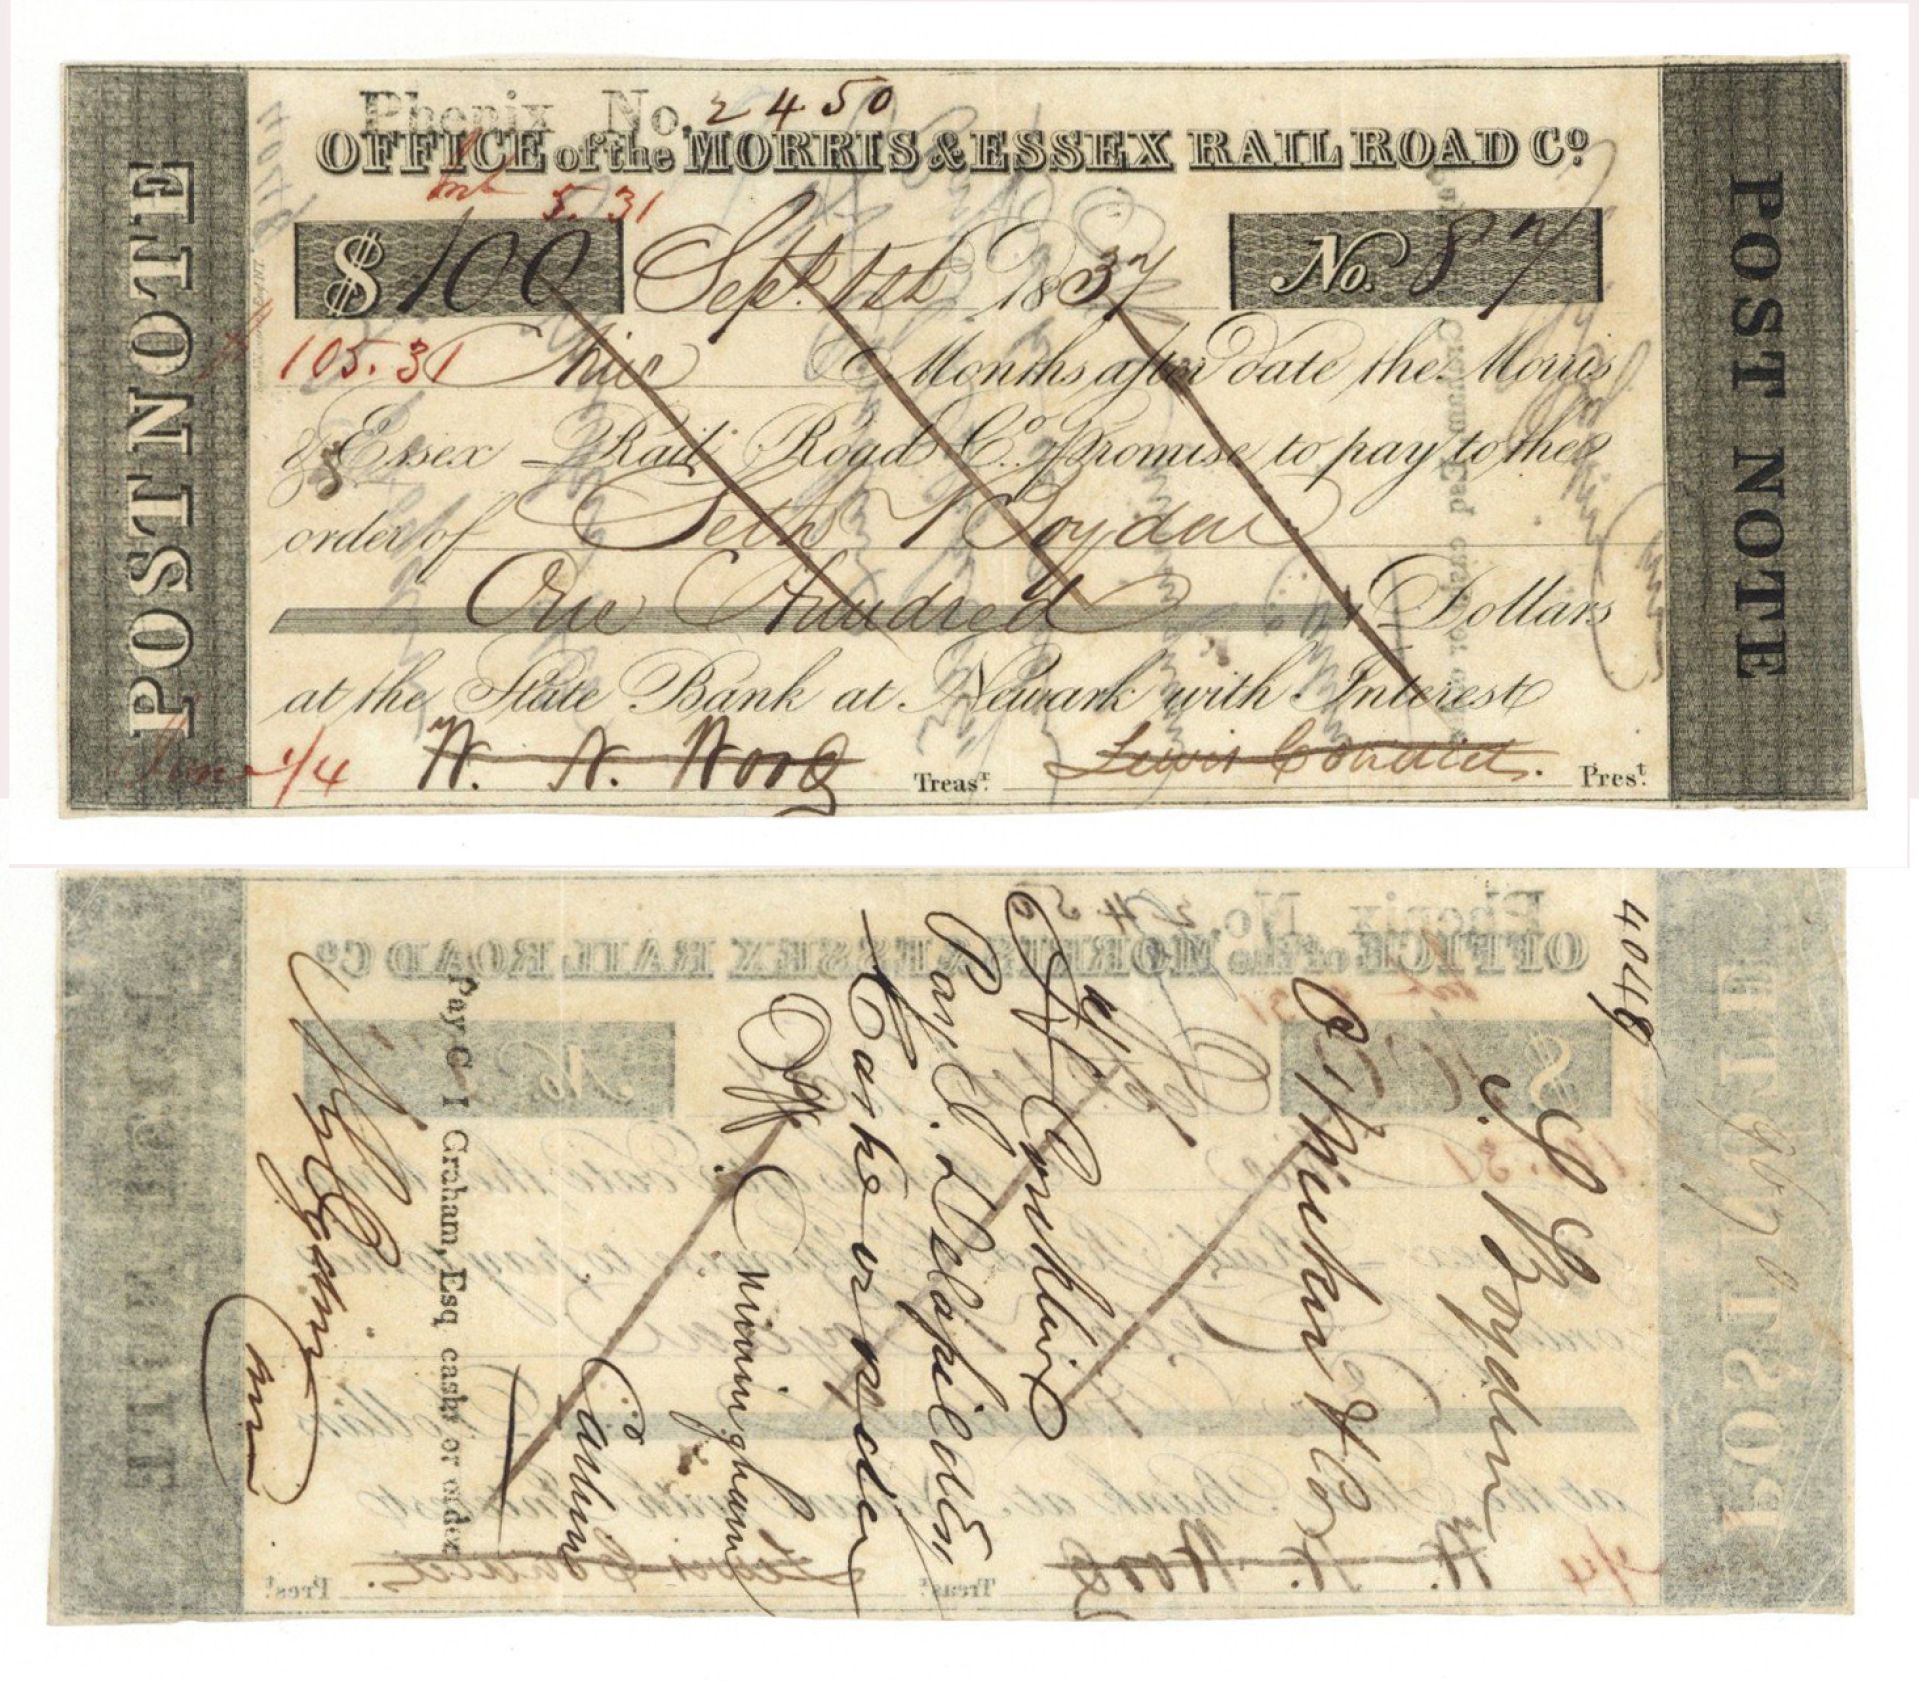 POST NOTE
Phenix No. 2450
OFFICE of the MORRIS & ESSEX RAIL ROAD Co.
Int 5.31
$100 Sept. 1st 1837 No. 87
105.31 Nine Months after date the Morris
& Essex Rail Road Co. Promise to pay to the
order of Seth Boyden
One Hundred Dollars
at the State Bank at Newark with Interest
June 1/4 W. N. Wood Treasr. Lewis Condict. Prest.
POST NOTE
4048
S. Boyden
Conklin
Pay. E. Delafield Esq
Cashr or order
Off. C Winningham
Cash
Pay C I Graham, Esq cashr or order